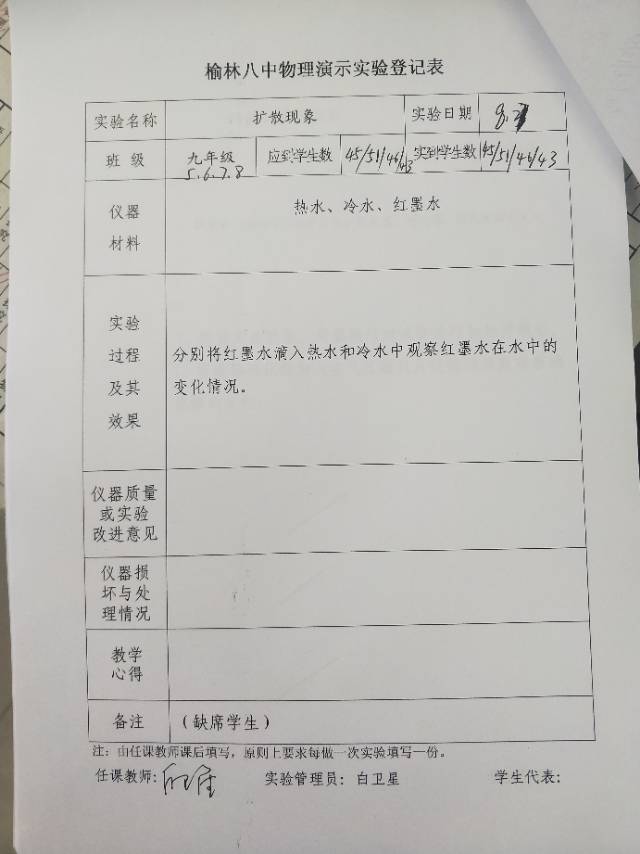 榆林八中物理演示实验登记表
实验名称 扩散现象 实验日期
班 级 九年级 应到学生数 45/51/46/43 实到学生数 45/51/46/43
5.6.7.8
仪器
材料
热水、冷水、红墨水
实验
过程
及其
效果
分别将红墨水滴入热水和冷水中观察红墨水在水中的
变化情况。
仪器质量
或实验
改进意见
仪器损
坏与处
理情况
教学
心得
备注 (缺席学生)
注：由任课教师课后填写，原则上要求每做一次实验填写一份。
任课教师: 实验管理员: 白卫星 学生代表: